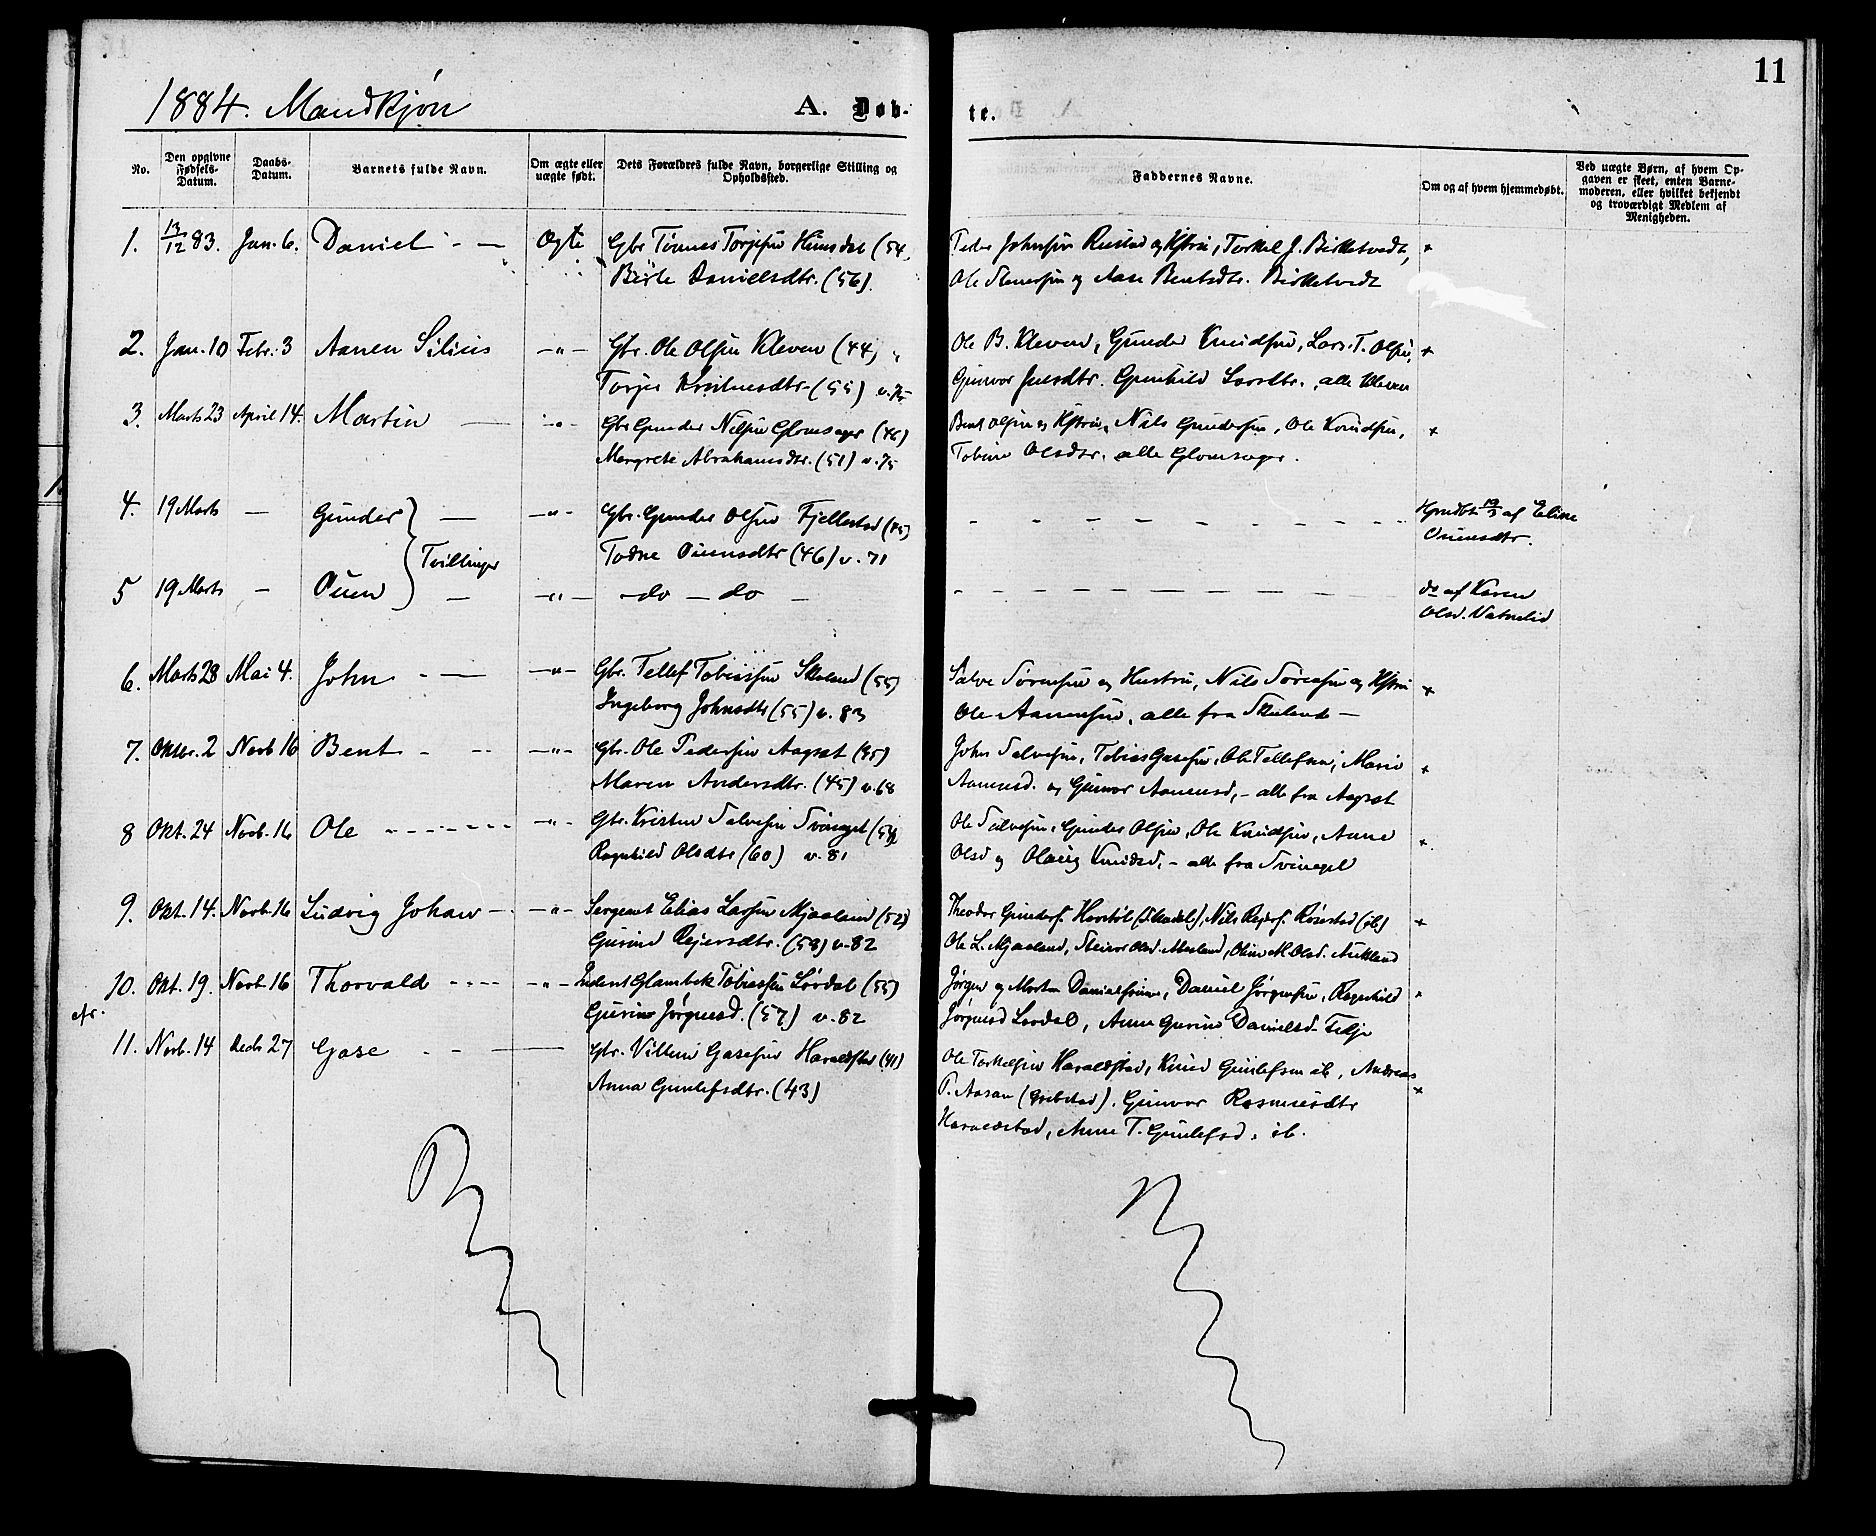 11
1884. Mandkjøn
A. Døb-
te.
No.
Den opgivne Fødsels-Datum.
Daabs-Datum.
Barnets fulde Navn.
Om ægte eller uægte født.
Dets Forældres fulde Navn, borgerlige Stilling og Opholdssted.
Faddernes Navne.
Om og af hvem hjemmedøbt.
Ved uægte Børn, af hvem Opgaven er skeet, enten Barnemoderen, eller hvilket bekjendt og troværdigt Medlem af Menigheden.
1. 13/12 83. Jan. 6. Daniel - — Ægte Gbr. Tønnes Torjesen (54, Peder Johnsen Rustad og Hstru, Torkel J. Birketvedt, +
Berte Danielsdtr. (56). Ole og Aase Bentsdtr. Birketvedt
2. Jan. 10 Febr. 3 Aanen Silius —"— Gbr. Ole Olsen Kleven (44) Ole B. Kleven, Gunder Knudsen, Lars T. Olsen, +
(55) v. 75 Gunvor Gunhild Larsdtr. alle Kleven
3. Marts 23 April 14. Martin — -"- Gbr. Gunder Nilsen Glomsager (46) Bent Olsen og Hstru, Nils Gundersen, Ole Knudsen, +
Margrete Abrahamsdtr. (51) v. 75 Tobine Olsdtr. alle Glomsager.
4. 19 Marts — Gunder — —"— Gbr. Gunder Olsen Fjellestad - — — — — Hjmdbt 19/3 af Eline
Tvillinger Todne Ouensdtr (46) v. 71 Ouensdtr.
5 19 Marts - Ouen — —"— -do — do — - — — — — do af Karen
Olsd. Vatnelid
6. Marts 28 Mai 4. John - — —"- Gbr. Tellef Tobiassen Skeland (55) Salve Sørensen og Hustru, Nils Sørensen og Hstru +
Ingeborg Johnsdtr (55) v. 83 Ole Aanensen, alle fra Skeland —
7. Oktbr. 2 Novb 16 Bent - -- —"- Gbr. Ole Pedersen Aagset (45) John Salvesen, Tobias Gasesen, Ole Tellefsen, Maria +
Maren Andersdtr. (45) v. 68 Aanensd. og Gunvor Aanensd, - alle fra Aagset
8 Okt. 24 Novb. 16 Ole ------- —"- Gbr. Kristen Salvesen (54) Ole Salvesen, Gunder Olsen, Ole Knudsen, Anne +
Ragnhild Olsdtr (60) v. 81 Olsd og Olaug Knudsd, - alle fra
9. Okt. 14. Novb. 16 Ludvig Johan -- —"- Sergeant Elias Larsen Mjaaland (52) Theodor Gunders. Nils Rejers. Røiestad (ib) +
Gurine Rejersdtr. (58) v. 82 Ole L. Mjaaland,
10. Okt. 19. Novb. 16 Thorvald ---- -"- Tobiassen Løvdal (55) Jørgen og Morten Danielsen, Daniel Jørgensen, Ragnhild +
Gurine Jørgensd. (57) v. 82 Jørgensd Løvdal, Anne Gurine Danielsd.
11. Novb. 14 Decb 27 Gase - - — Gbr. Villum Gasesen Haraldstad (41) Ole Torkelsen Haraldstad, Knud Gunlefsen ib, Andreas
Anna Gunlefsdtr. (43) P. Aasan Gunvor Rasmusdtr +
Haraldstad, Anne T. Gunlefsd. ib.